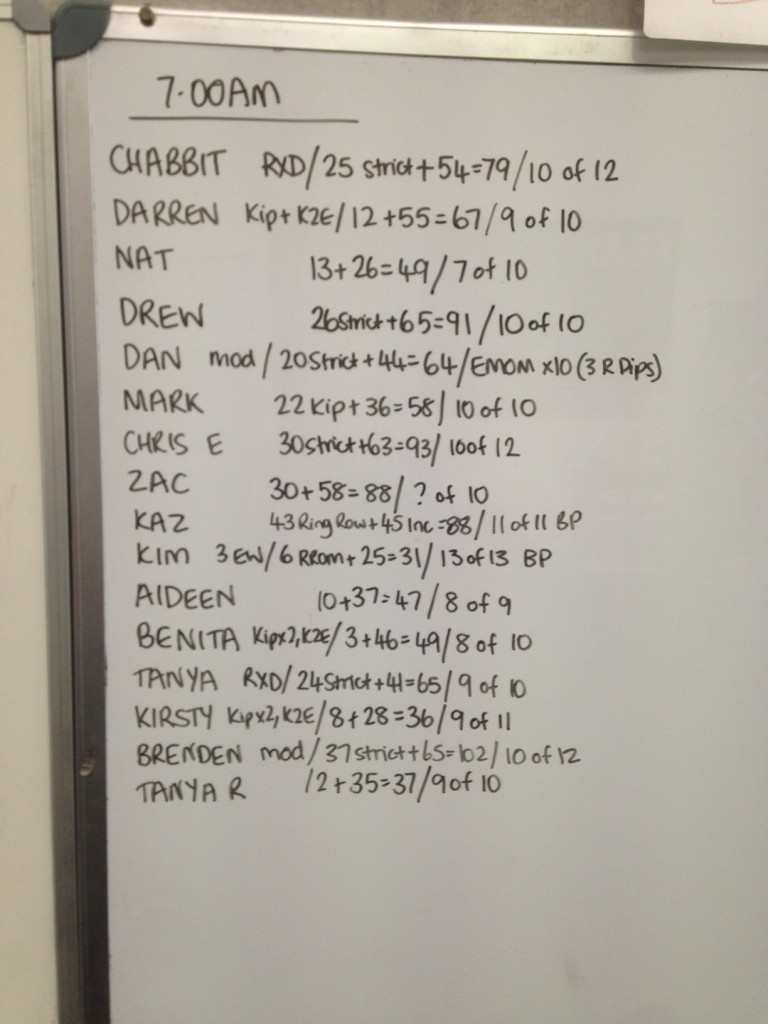 7.00AM
CHABBIT RXD/25 strict+54=79/10 of 12
DARREN Kip+K2E/12+55=67/9 of 10
NAT 13+26=49/7 of 10
DREW 26Strict+65=91/10 of 10
DAN mod/20Strict+44=64/EMOM x10 (3 R Dips)
MARK 22 Kip+36=58/10 of 10
CHRIS E 30strict+63=93/10of 12
ZAC 30+58=88/? of 10
KAZ 43 Ring Row+45 Inc=88/11 of 11 BP
KIM 3EW/6 RROM+25=31/13 of 13 BP
AIDEEN 10+37=47/8 of 9
BENITA Kipx2,K2E/3+46=49/8 of 10
TANYA RXD/24Strict+41=65/9 of 10
KIRSTY Kipx2,K2E/8+28=36/9 of 11
BRENDEN mod/37strict+65=102/10 of 12
TANYA R /2+35=37/9of 10